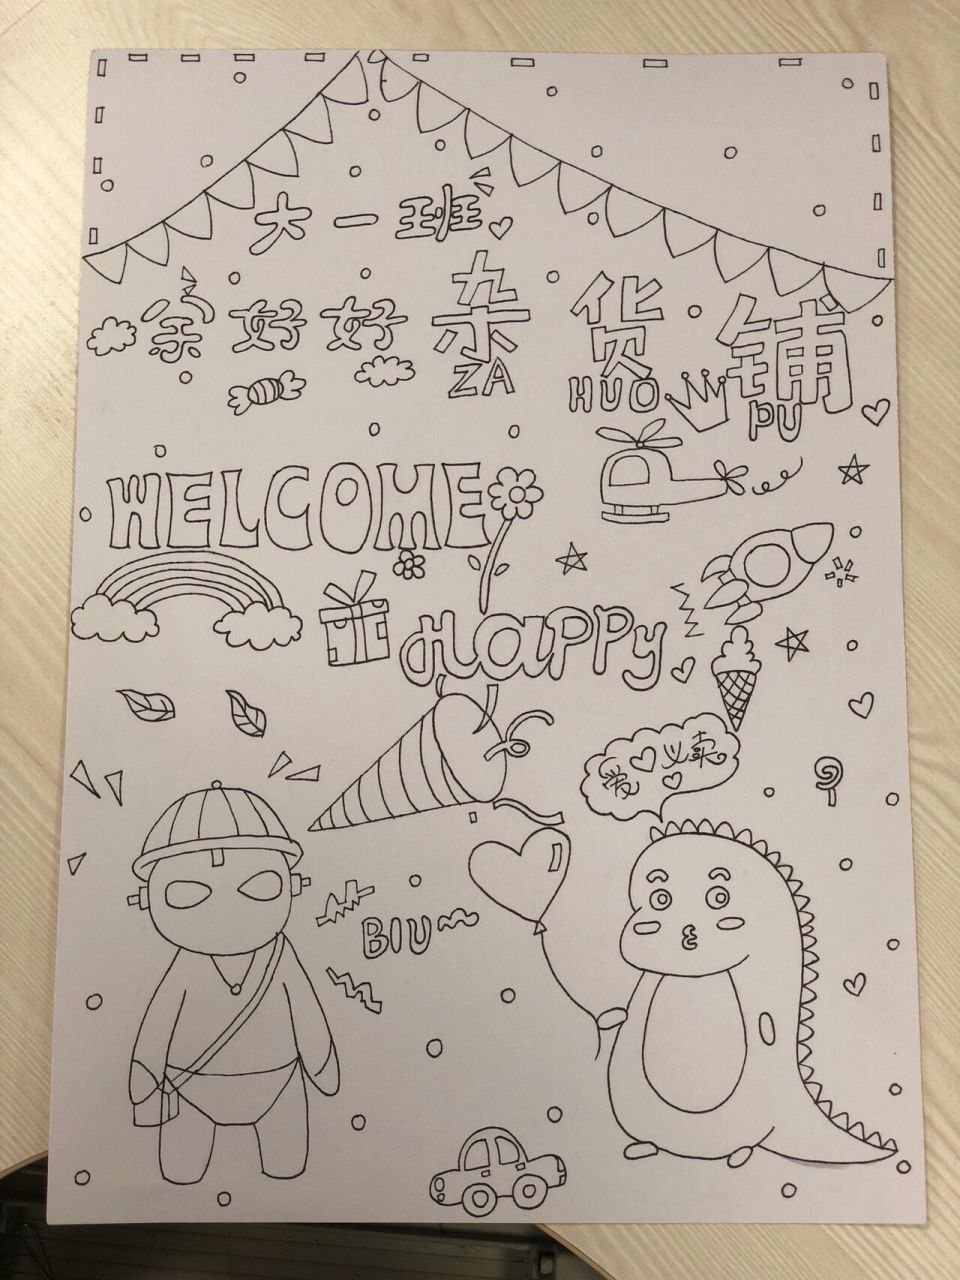 大一班
余好好杂货铺
ZA HUO PU
WELCOME
HAPPY
爱义卖
BIU